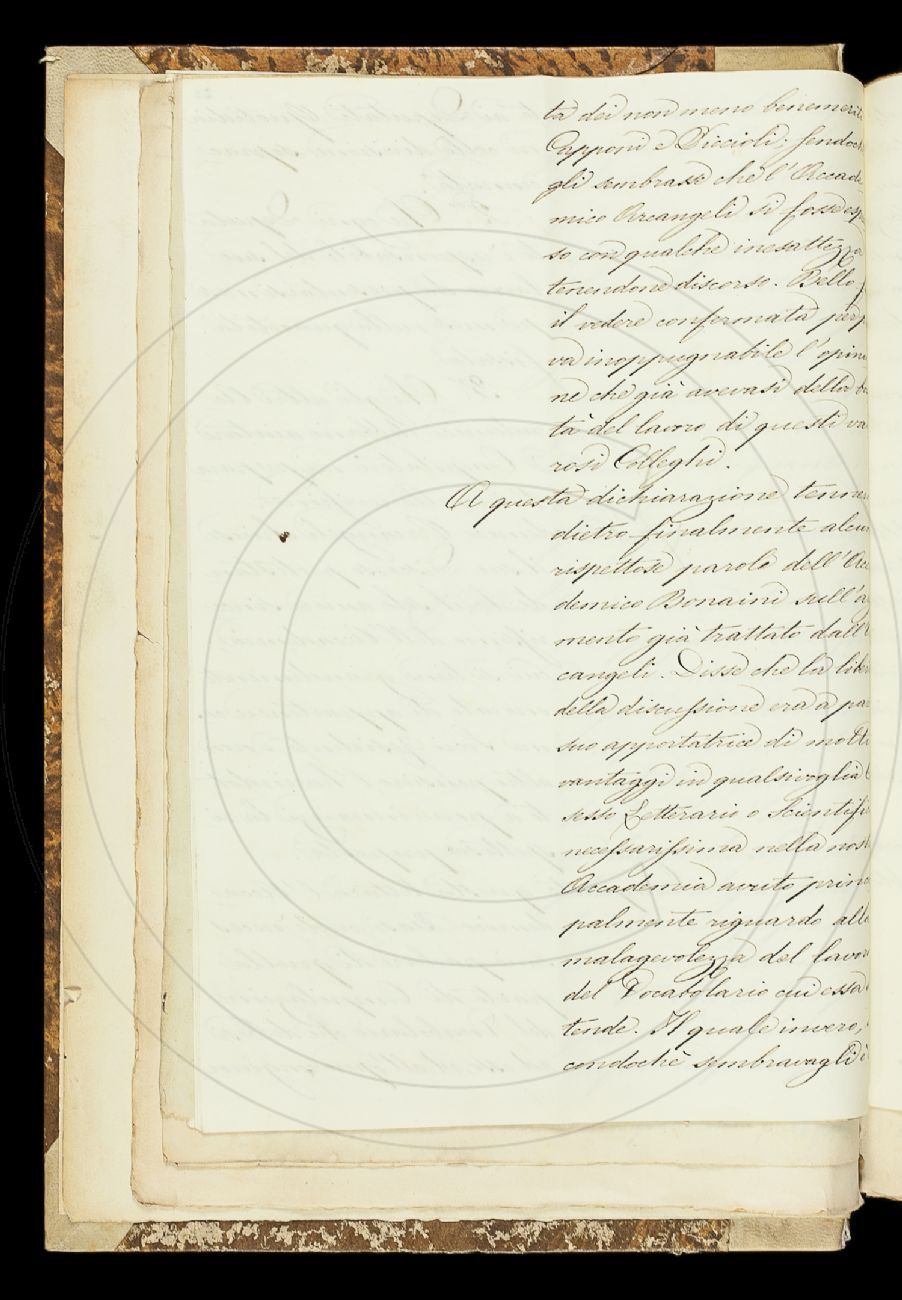 ta dei non meno benemeri
Capponi e Piccioli; sendoc
gli sembrasse che l'Accade-
mico Arcangeli si fosse esp
so con qualche inesattezza
tenendone discorso. Bello f
il vedere confermata per p
va inoppugnabile l'opin
ne che già avevasi della bo
tà del lavoro di questi va
rosi Colleghi.
A questa dichiarazione tenne
dietro finalmente alcun
rispettose parole dell'Acc
demico Bonaini sull'a
mento già trattato dall'
cangeli. Disse che la liber
della discussione era a pa
suo apportatrice di molti
vantaggi in qualsivoglia C
sesso Letterario o Scientifi
necessarissima nella nost
Accademia avuto princ
palmente riguardo alla
malagevolezza del lavor
del Vocabolario cui essa
tende. Il quale invero,
condochè sembravagli i